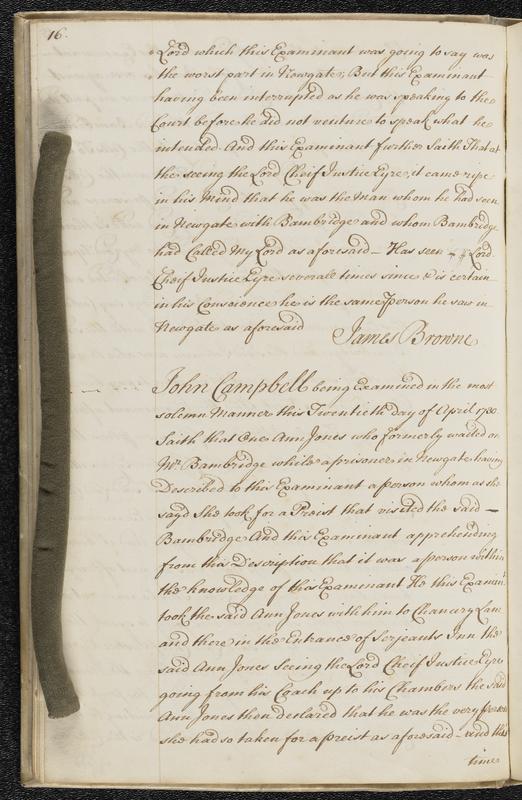 16.
Lord which this Examinant was going to say was
the worst part in Newgate; But this Examinant
having been interrupted as he was speaking to the
Court before he did not venture to speak what he
intended. And this Examinant further saith That at
the seeing the Lord Cheif Justice Eyre, it came ripe
in his Mind that he was the Man whom he had seen
in Newgate with Bambridge and whom Bambridge
had Called My Lord as aforesaid — Has seen Lord
Cheif Justice Eyre severall times since & is certain
in his Conscience he is the same Person he saw in
Newgate as aforesaid
James Browne
John Campbell being Examined in the most
solemn Manner this Twentieth day of April 1730
Saith that One Ann Jones who formerly waited on
Mr. Bambridge while a prisoner in Newgate having
Described to this Examinant a person whom as she
sayd She took for a Preist that visited the said —
Bambridge And this Examinant apprehending
from this Description that it was a person within
the knowledge of this Examinant He this Examint
took the said Ann Jones with him to Chancery Lane
and there in the Entrance of Serjeants Inn the
said Ann Jones seeing the Lord Cheif Justice Eyre
going from his Coach up to his Chambers the said
Ann Jones then declared that he was the very person
she had so taken for a preist as aforesaid — and this
time